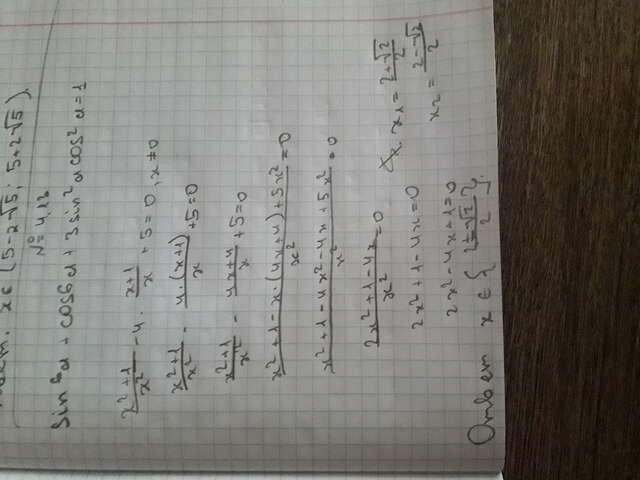 x ∈ (5-2√5; 5+2√5).
№ 4.13
sin⁶α + cos6α + 3sin²α cos²α = 1
(x²+1)/x² - 4 · (x+1)/x + 5 = 0, x ≠ 0
(x²+1)/x² - (4·(x+1))/x + 5 = 0
(x²+1)/x² - (4x+4)/x + 5 = 0
(x²+1-x·(4x+4)+5x²)/x² = 0
(x²+1-4x²-4x+5x²)/x² = 0
(2x²+1-4x)/x² = 0
x₁ = (2+√2)/2
2x²+1-4x=0
x₂ = (2-√2)/2
2x²-4x+1=0
Ответ x ∈ {(2±√2)/2}.